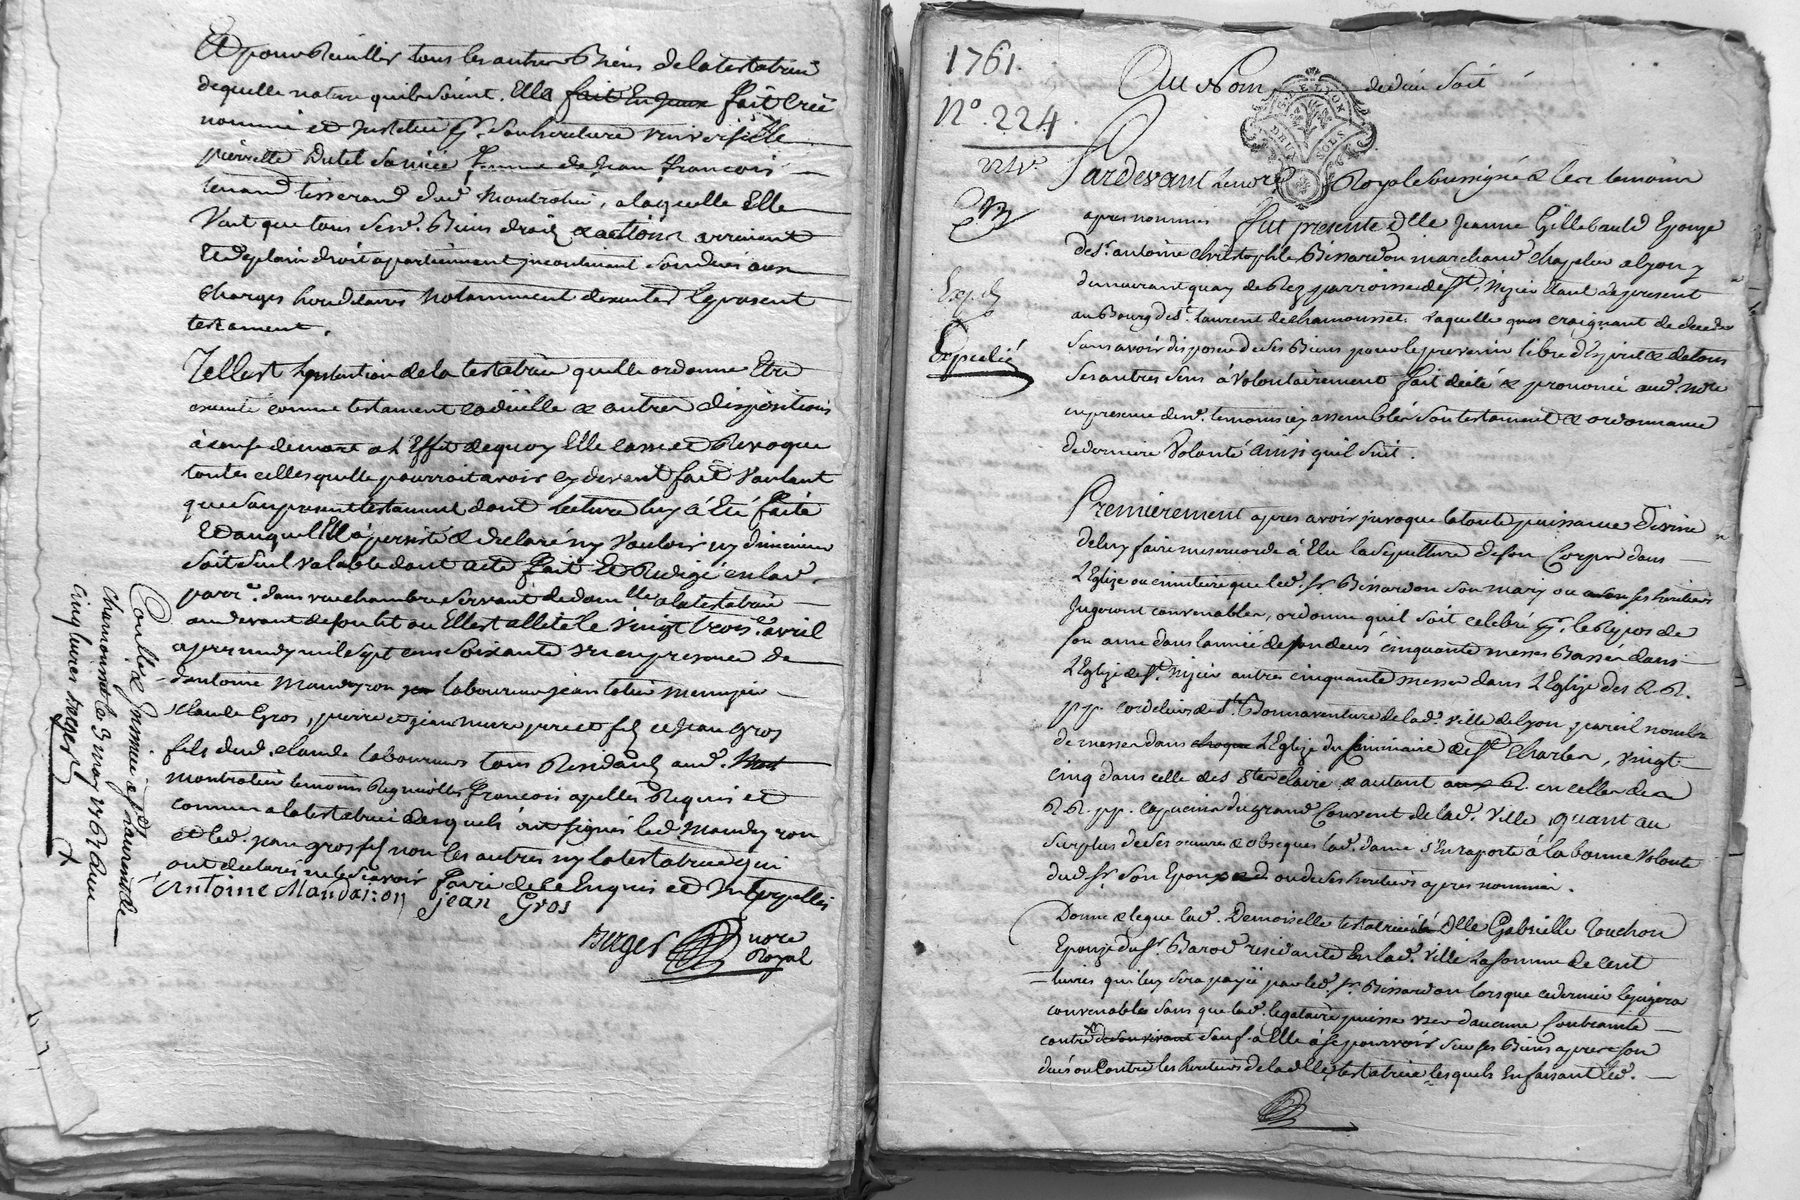 Et pour Recüillir tous les autres Biens de la testatrice
de quelle nature quils soient. Elle fait En Jceux fait Créé
nommé et Jnstitué pr. son heritiere universelle
pierrette Dutel sa niéce femme de Jean François
tenand tisserand dud. Montrotier, a laquelle Elle
Veut que tous sesd. Biens droits & actions arrivent
Et de plain droit apartiennent jncontinent son décés aux
charges heréditaires notamment dexecuter le present
testament.
Telle est lintention de la testatrice quelle ordonne Etre
executé comme testament codicille & autres dispositions
à cause de mort a l'Effet de quoy Elle casse et Revoque
toutes celles quelle pourroit avoir cy devant fait Voulant
que son present testament dont lecture luy á Eté faite
Et auquel Elle á persisté & declaré ny Vouloir ny diminuer
soit seul valable dont acte fait Et Redigé en lad.
parr.e dans une chambre servant de dom.lle a la testatrice
au devant de son lit ou Elle est allitée le vingt trois.e avril
apres midy mil sept cens soixante un en presence de
d'antoine Mandayron laboureur jean
claude Gros, pierre et jean mure pere et fils et jean Gros
fils dud. claude laboureurs tous Residants aud. Mont
montrotier temoins Requis &  François apellés Requis et
connus a la testatrice desquels ont signés led. Mandayron
et led. jean gros fils non les autres ny la testatrice qui
ont declarés ne le scavoir faire de ce Enquis et Interpellés
Antoine Mandairon jean Gros
Berger nore
Royal
Controllé & Jnsinué à st Laurent de
chamousset le 3 may 1761 Reçu
cinq livres Berger
1761.
No. 224
Exp.dé
Expedié
Au Nom de dieu soit
G. DE LYON
DEUX SOLS
Pardevant le nore Royal soussigné & les temoins
apres nommés fut presente Dlle Jeanne Gillebaud Epouze
de sr. antoine christophle Bissardon marchand chapelier a lyon y
demeurant quay de Retz parroisse de st. Nizier Etant de present
au Bourg de st. laurent de chamousset. laquelle craignant de deceder
sans avoir disposé de ses Biens pour le prevenir libre d'Esprit & de tous
ses autres sens á Volontairement fait dicté & prononcé aud. nore
en presence desd. temoins cy assemblés son testament & ordonnance
de derniere Volonté ainsi quil suit.
Premierement apres avoir jnvoqué la toute puissance Divine
de luy faire misericorde á Elu la sepulture de son Corps dans
l'Eglise ou cimitiere que led. sr. Bissardon son mary ou ses heritiers
Jugeront convenables, ordonne quil soit celebré pr. le Repos de
son ame dans lannée de son deces cinquante messes Basses dans
l'Eglise de st. Nizier autres cinquante messes dans l'Eglise des R. R.
p.p. cordeliers de st. Bonnaventure de lad. ville de lyon, pareil nombre
de messes dans chaque l'Eglise du seminaire de st Charles, vingt
cinq dans celle des Stes claire & autant en celles des
R. R. p.p. capucins du grand Couvent de lad. Ville, quant au
surplus de ses œuvres & obseques lad. dame s'En raporte á la bonne Volonté
dud sr. son Epoux ou de ses heritiers apres nommés.
Donne & legue lad. Demoiselle testatrice á Dlle Gabrielle Touchon
Epouze du sr. Barod residante En lad. Ville la somme de cent
livres qui luy sera payée par led. sr. Bissardon lorsque ce dernier le jugera
convenable sans que lad. legataire puisse user d'aucune Contrainte
contre de son vivant sauf á Elle á se pourvoir sur ses Biens apres son
décés ou Contre les heritiers de lad Dlle testatrice lesquels En faisant led.